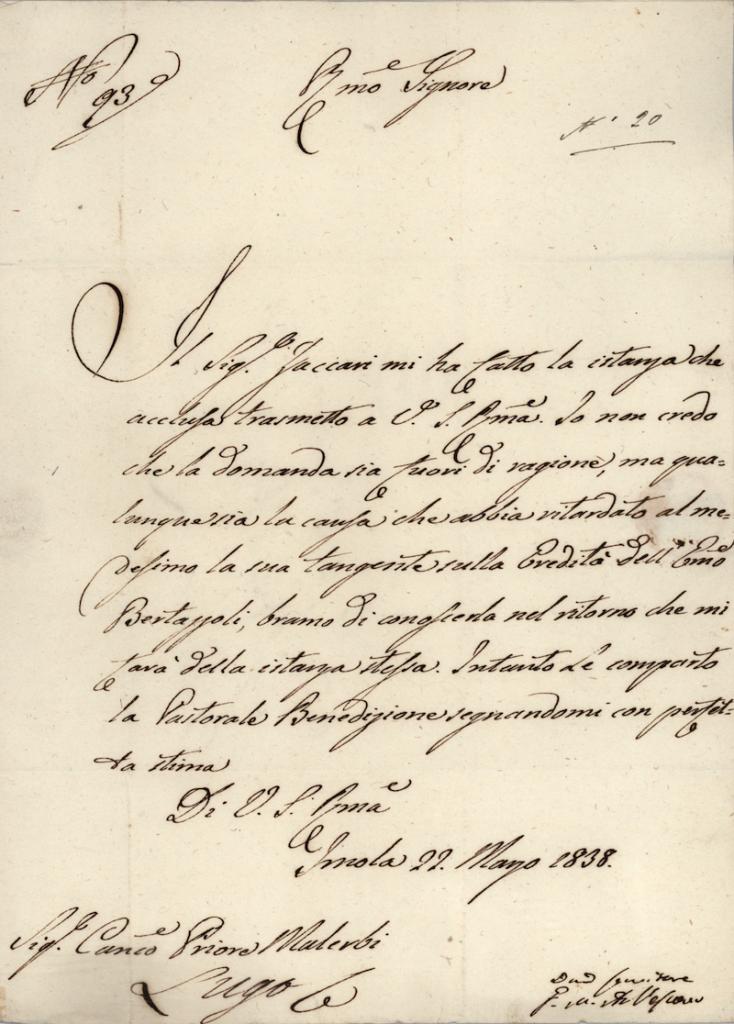 No 93
Rmo Signore
N. 20
Il Sig.r Zaccari mi ha fatto la istanza che
acclusa trasmetto a V. S. Rma. Io non credo
che la domanda sia fuori di ragione, ma qua-
lunque sia la causa che abbia ritardato al me-
desimo la sua tangente sulla Eredità dell'Emo
Bertazzoli, bramo di conoscerla nel ritorno che mi
farà della istanza stessa. Intanto Le comparto
la Pastorale Benedizione segnandomi con perfet-
ta stima
Di V. S. Rma
Imola 22. Marzo 1838.
Sig.r Canco Priore Malerbi
Lugo